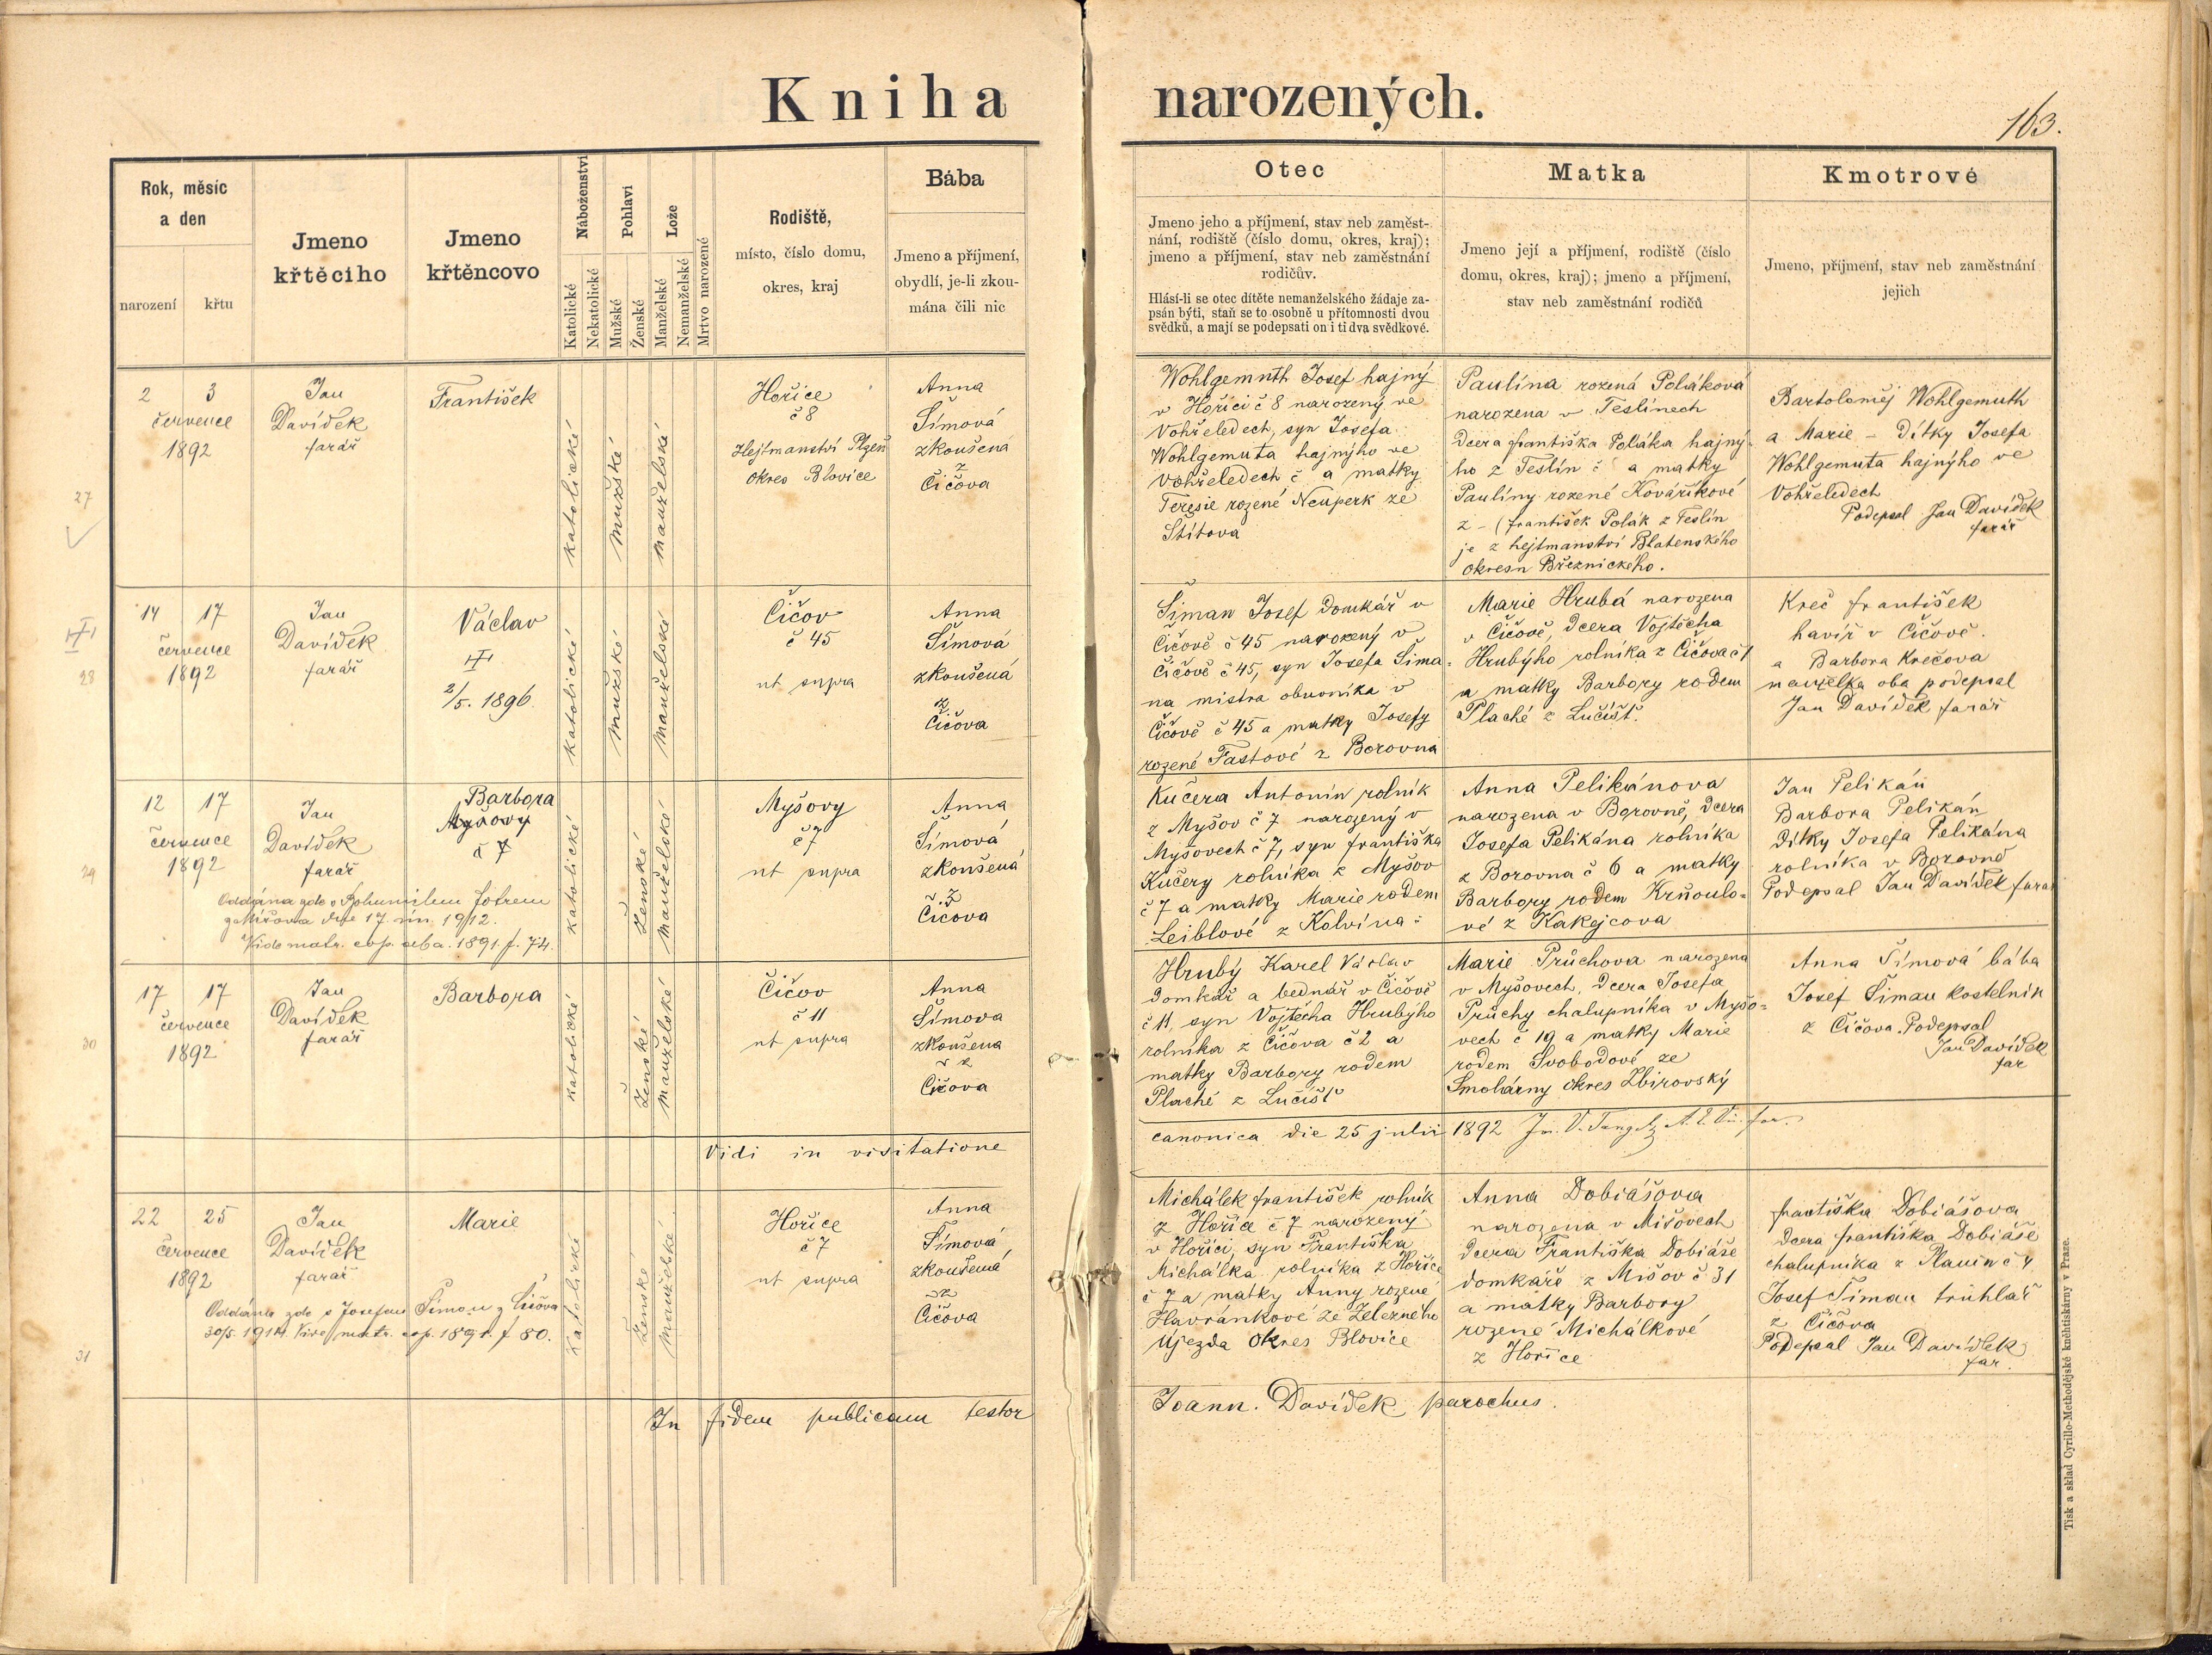 Kniha narozených.
163.
Rok, měsíc
a den
narození
křtu
Jmeno
křtěciho
Jmeno
křtěncovo
Náboženství
Katolické
Nekatolické
Pohlaví
Mužské
Ženské
Lože
Manželské
Nemanželské
Mrtvo narozené
Rodiště,
místo, číslo domu,
okres, kraj
Bába
Jmeno a příjmení,
obydlí, je-li zkou-
mána čili nic
Otec
Jmeno jeho a příjmení, stav neb zaměst-
nání, rodiště (číslo domu, okres, kraj);
jmeno a příjmení, stav neb zaměstnání
rodičův.
Hlásí-li se otec dítěte nemanželského žádaje za-
psán býti, staň se to osobně u přítomnosti dvou
svědků, a mají se podepsati on i ti dva svědkové.
Matka
Jmeno její a příjmení, rodiště (číslo
domu, okres, kraj); jmeno a příjmení,
stav neb zaměstnání rodičů
Kmotrové
Jmeno, příjmení, stav neb zaměstnání
jejich
27
2 3
července
1892
Jan
Davídek
farář
František
katolické
mužské
manželské
Hořice
č 8
Hejtmanství Plzeň
okres Blovice
Anna
Šímová
zkoušená
z
Čičova
Wohlgemuth Josef hajný
v Hořici č 8 narozený ve
Vohřeledech, syn Josefa
Wohlgemuta hajnýho ve
Vohřeledech č a matky
Teresie rozené Neuperk ze
Štítova
Paulína rozená Poláková
narozena v Teslínech
dcera františka Poláka hajný-
ho z Teslín č a matky
Paulíny rozené Kovaříkové
z – (františek Polák z Teslín
je z hejtmanství Blatenského
okresu Březnického.
Bartoloměj Wohlgemuth
a Marie – dítky Josefa
Wohlgemuta hajnýho ve
Vohřeledech
Podepsal Jan Davídek
farář
28
14 17
července
1892
Jan
Davídek
farář
Václav
2/5. 1896
katolické
mužské
manželské
Čičov
č 45
ut supra
Anna
Šímová
zkoušená
z
Čičova
Šiman Josef domkář v
Čičově č 45 narozený v
Čičově č 45, syn Josefa Šima-
na mistra obuvníka v
Čičově č 45 a matky Josefy
rozené Fastové z Borovna
Marie Hrubá narozena
v Čičově, dcera Vojtěcha
Hrubýho rolníka z Čičova č 1
a matky Barbory rodem
Plaché z Lučišť.
Kreč františek
havíř v Čičově.
a Barbora Krečova
manželka oba podepsal
Jan Davídek farář
29
12 17
července
1892
Jan
Davídek
farář
Barbora
Myšovy
č 7
Oddána zde s Bohumilem Fotrem
z Míšova dne 17. 1912.
Vide matr. cop. ab a. 1891. f. 74.
katolické
ženské
manželské
Myšovy
č 7
ut supra
Anna
Šímová
zkoušená
z
Čičova
Kučera Antonín rolník
z Myšov č 7 narozený v
Myšovech č 7, syn františka
Kučery rolníka z Myšov
č 7 a matky Marie rodem
Leiblové z Kolvína
Anna Pelikánova
narozena v Borovně, dcera
Josefa Pelikána rolníka
z Borovna č 6 a matky
Barbory rodem Krňoulo-
vé z Kakejcova
Jan Pelikán
Barbora Pelikán
dítky Josefa Pelikána
rolníka v Borovně
Podepsal Jan Davídek farář
30
17 17
července
1892
Jan
Davídek
farář
Barbora
katolické
ženské
manželské
Čičov
č 11
ut supra
Anna
Šímova
zkoušena
z
Čičova
Hrubý Karel Václav
domkář a bednář v Čičově
č 11, syn Vojtěcha Hrubýho
rolníka z Čičova č 2 a
matky Barbory rodem
Plaché z Lučišť
Marie Průchova narozena
v Myšovech, dcera Josefa
Průchy chalupníka v Myšo-
vech č 19 a matky Marie
rodem Svobodové ze
Smolárny okres Zbirovský
Anna Šímová bába
Josef Šiman kostelník
z Čičova. Podepsal
Jan Davídek
far
Vidi in visitatione canonica die 25 julii 1892
31
22 25
července
1892
Jan
Davídek
farář
Marie
Oddána zde s Josefem Šímou z Čičova
30/5. 1914. Vide matr. cop. 1891. f 80.
katolické
ženské
manželské
Hořice
č 7
ut supra
Anna
Šímová
zkoušená
z
Čičova
Michálek františek rolník
z Hořic č 7 narozený
v Hořici, syn Františka
Michálka rolníka z Hořic
č 7 a matky Anny rozené
Havránkové ze Železného
Újezda okres Blovice
Anna Dobiášova
narozena v Mišovech
dcera Františka Dobiáše
domkáře z Mišov č 31
a matky Barbory
rozené Michálkové
z Hořice
františka Dobiášova
dcera františka Dobiáše
chalupníka z Planin č 4
Josef Šiman truhlář
z Čičova
Podepsal Jan Davídek
far.
In fidem publicam testor Joann. Davídek parochus.
Tisk a sklad Cyrillo-Methodějské kněhtiskárny v Praze.